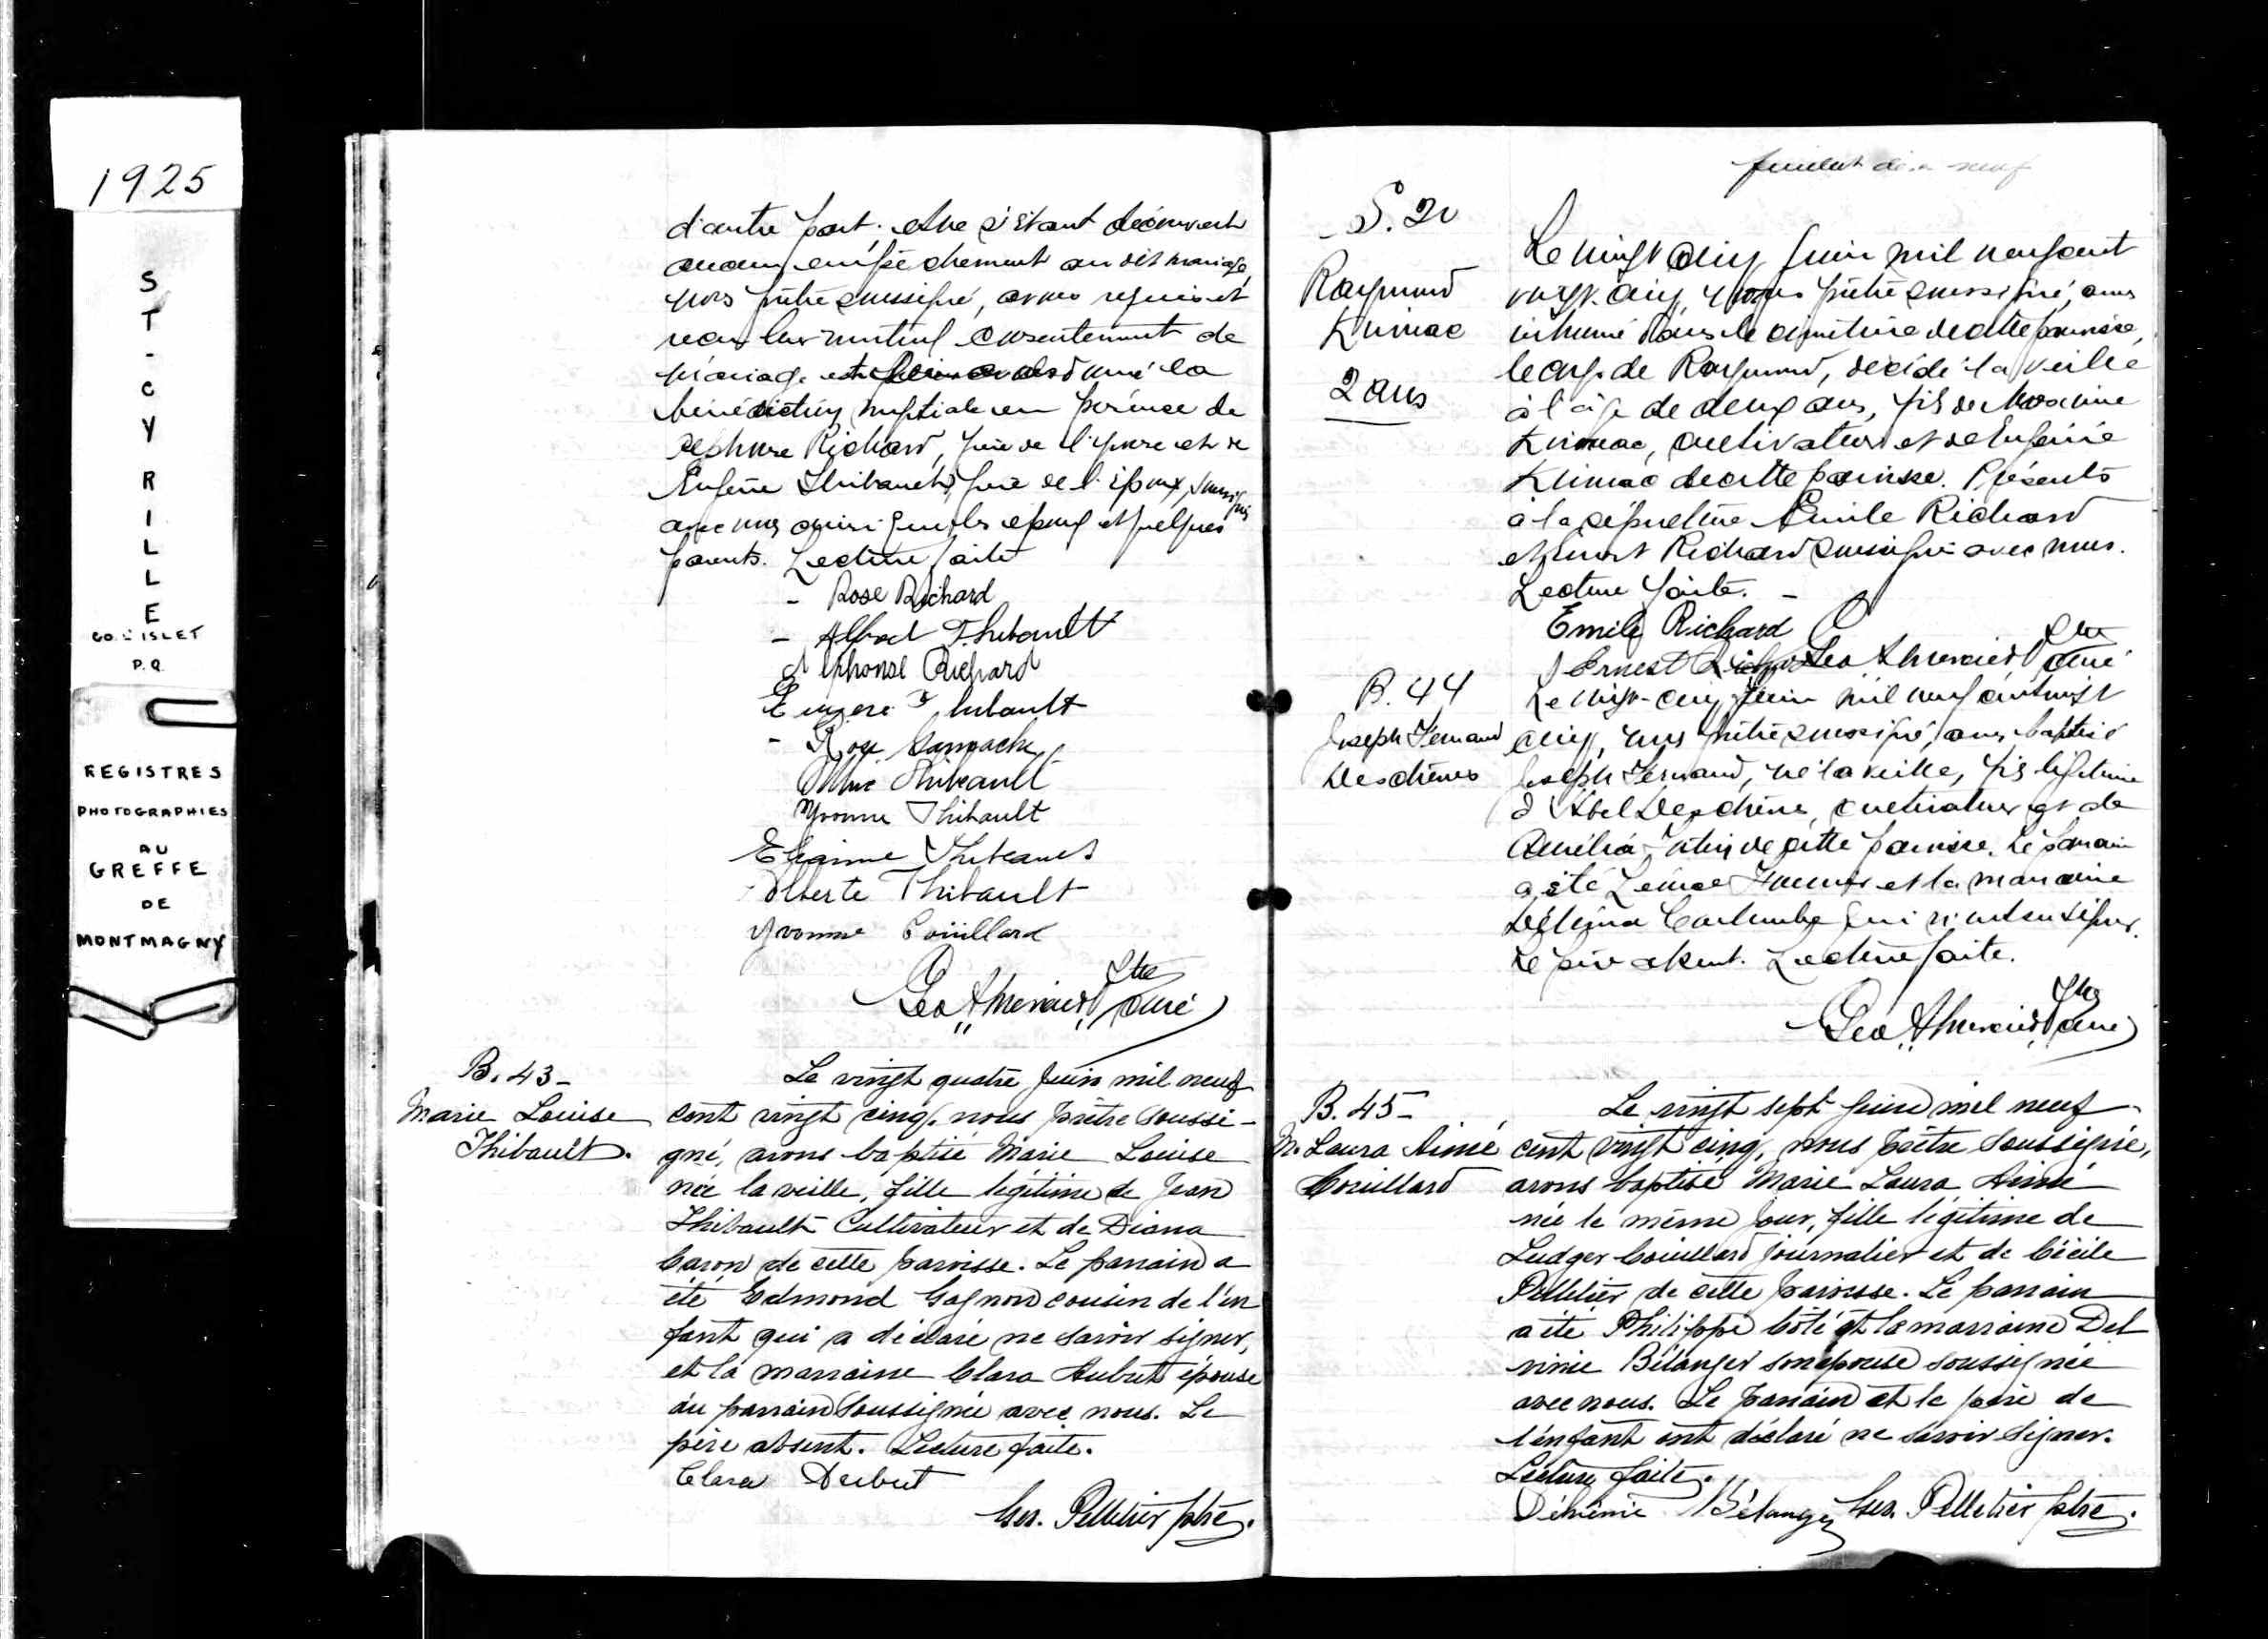 1925
ST-CYRILLE
CO. L'ISLET
P.Q.
REGISTRES
PHOTOGRAPHIES
AU
GREFFE
DE
MONTMAGNY
d'autre part; et ne s'étant découvert
aucun empêchement au dit mariage,
nous prêtre soussigné, avons requis et
reçu leur mutuel consentement de
mariage et leur avons donné la
bénédiction nuptiale en présence de
Alphonse Richard, père de l'épouse et de
Eugène Thibault, père de l'époux, soussignés
avec nous ainsi que les époux et quelques
parents. Lecture faite
- Rose Richard
- Alfred Thibault
Alphonse Richard
Eugene Thibault
- Rose
Thibault
Yvonne Thibault
Thibault
Alberte Thibault
Yvonne Couillard
Geo. A. Mercier Ptre curé
B. 43 -
Marie Louise
Thibault.
Le vingt quatre Juin mil neuf
cent vingt cinq, nous prêtre soussi-
gné, avons baptisé Marie Louise
née la veille, fille légitime de Jean
Thibault Cultivateur et de Diana
Caron de cette paroisse. Le parrain a
été Edmond Gagnon cousin de l'en
fant qui a déclaré ne savoir signer,
et la marraine Clara Aubut épouse
du parrain soussignée avec nous. Le
père absent. Lecture faite.
Clara Aubut
Pelletier ptre.
feuillet dix-neuf
S. 20
Raymond
Kirouac
2 ans
Le vingt cinq Juin mil neuf cent
vingt-cinq, nous prêtre soussigné, avons
inhumé dans le cimetière de cette paroisse,
le corps de Raymond, décédé la veille
à l'âge de deux ans, fils de Maxime
Kirouac, cultivateur et de Eugénie
Kirouac de cette paroisse. Présents
à la sépulture Emile Richard
et Ernest Richard soussignés avec nous.
Lecture faite. -
Emile Richard
Ernest Richard Geo A Mercier Ptre curé
B. 44
Joseph Fernand
Deschênes
Le vingt-cinq Juin mil neuf cent vingt
cinq, nous prêtre soussigné, avons baptisé
Joseph Fernand, né la veille, fils légitime
d'Abel Deschênes, cultivateur et de
de cette paroisse. Le parrain
a été et la marraine
qui n'ont su signer.
Le père absent. Lecture faite.
Geo. A. Mercier Ptre curé
B. 45 -
M. Laura Aimé
Couillard
Le vingt sept Juin mil neuf
cent vingt cinq, nous prêtre soussigné,
avons baptisé Marie Laura Aimé
née le même jour, fille légitime de
Ludger Couillard journalier et de Cécile
Pelletier de cette paroisse. Le parrain
a été Philippe Côté et la marraine Del
vinie Bélanger son épouse soussignée
avec nous. Le parrain et le père de
l'enfant ont déclaré ne savoir signer.
Lecture faite.
Bélanger Pelletier ptre.